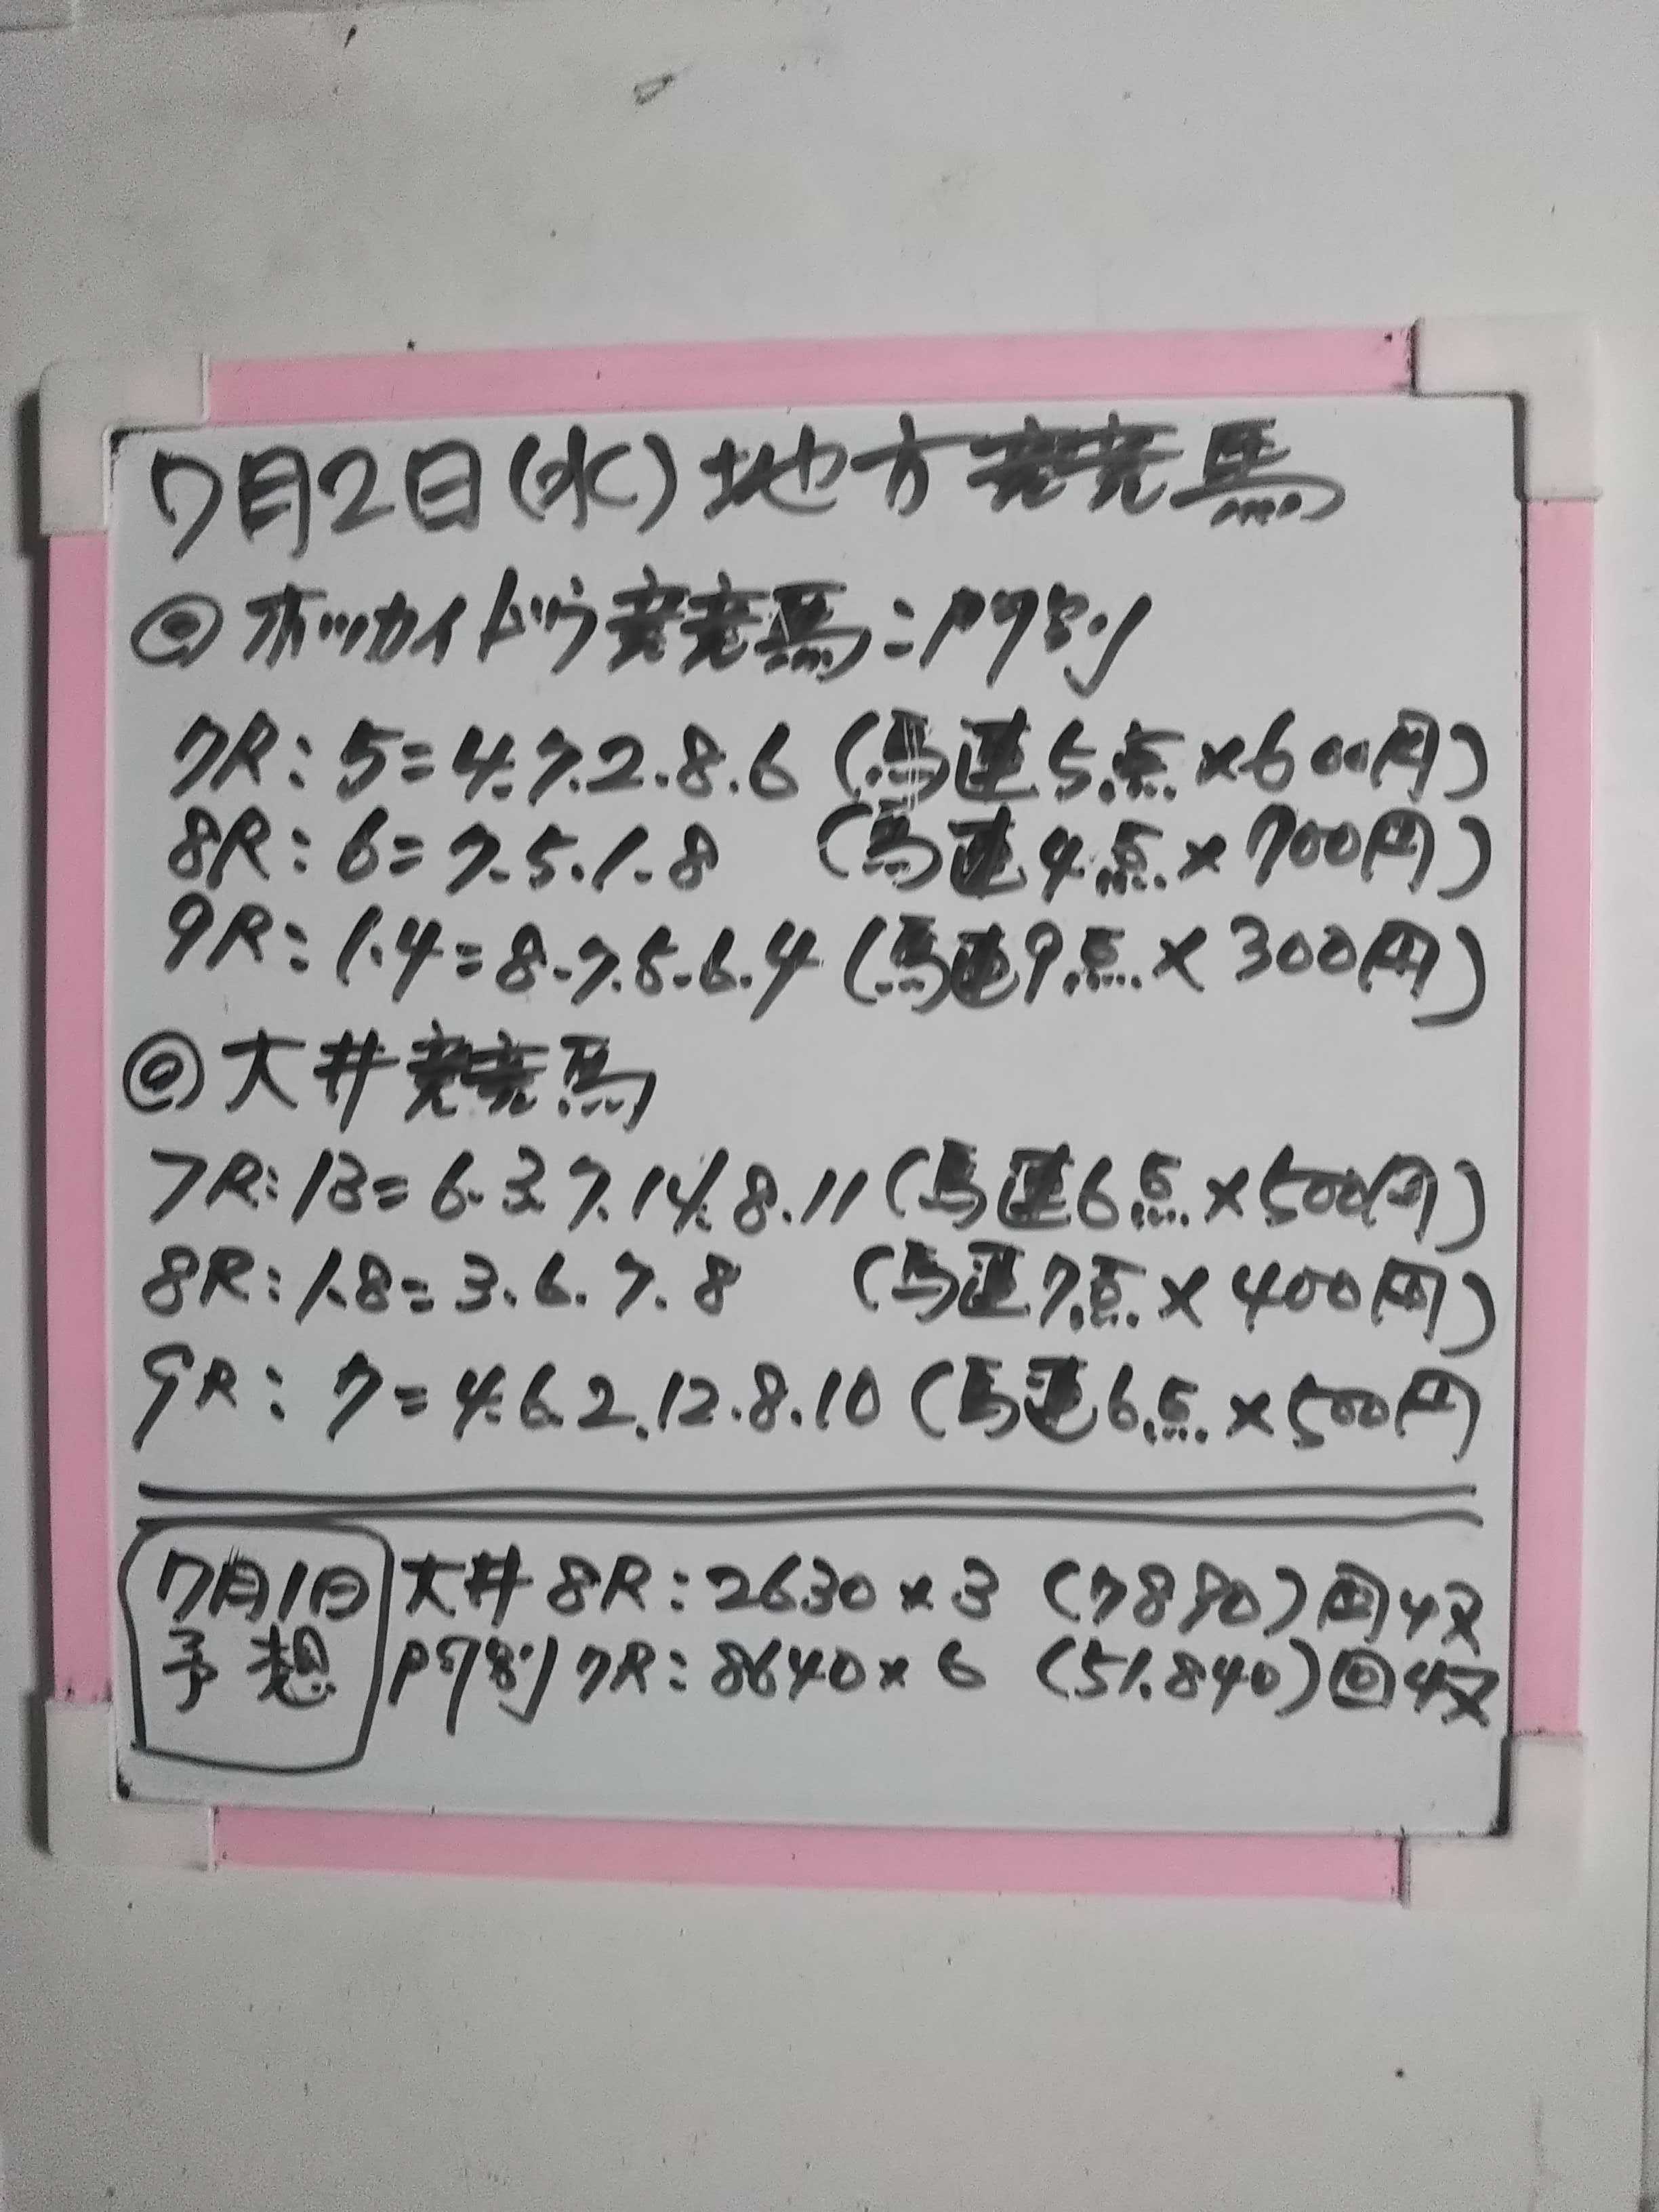 7月2日(水)地方競馬
◎ホッカイドウ競馬:門別
7R:5=4.7.2.8.6(馬連5点×600円)
8R:6=7.5.1.8(馬連4点×700円)
9R:1.4=8.7.5.6.4(馬連9点×300円)
◎大井競馬
7R:13=6.3.7.14.8.11(馬連6点×500円)
8R:1.8=3.6.7.8(馬連7点×400円)
9R:7=4.6.2.12.8.10(馬連6点×500円
7月1日
予想
大井8R:2630×3(7890)回収
門別7R:8640×6(51.840)回収